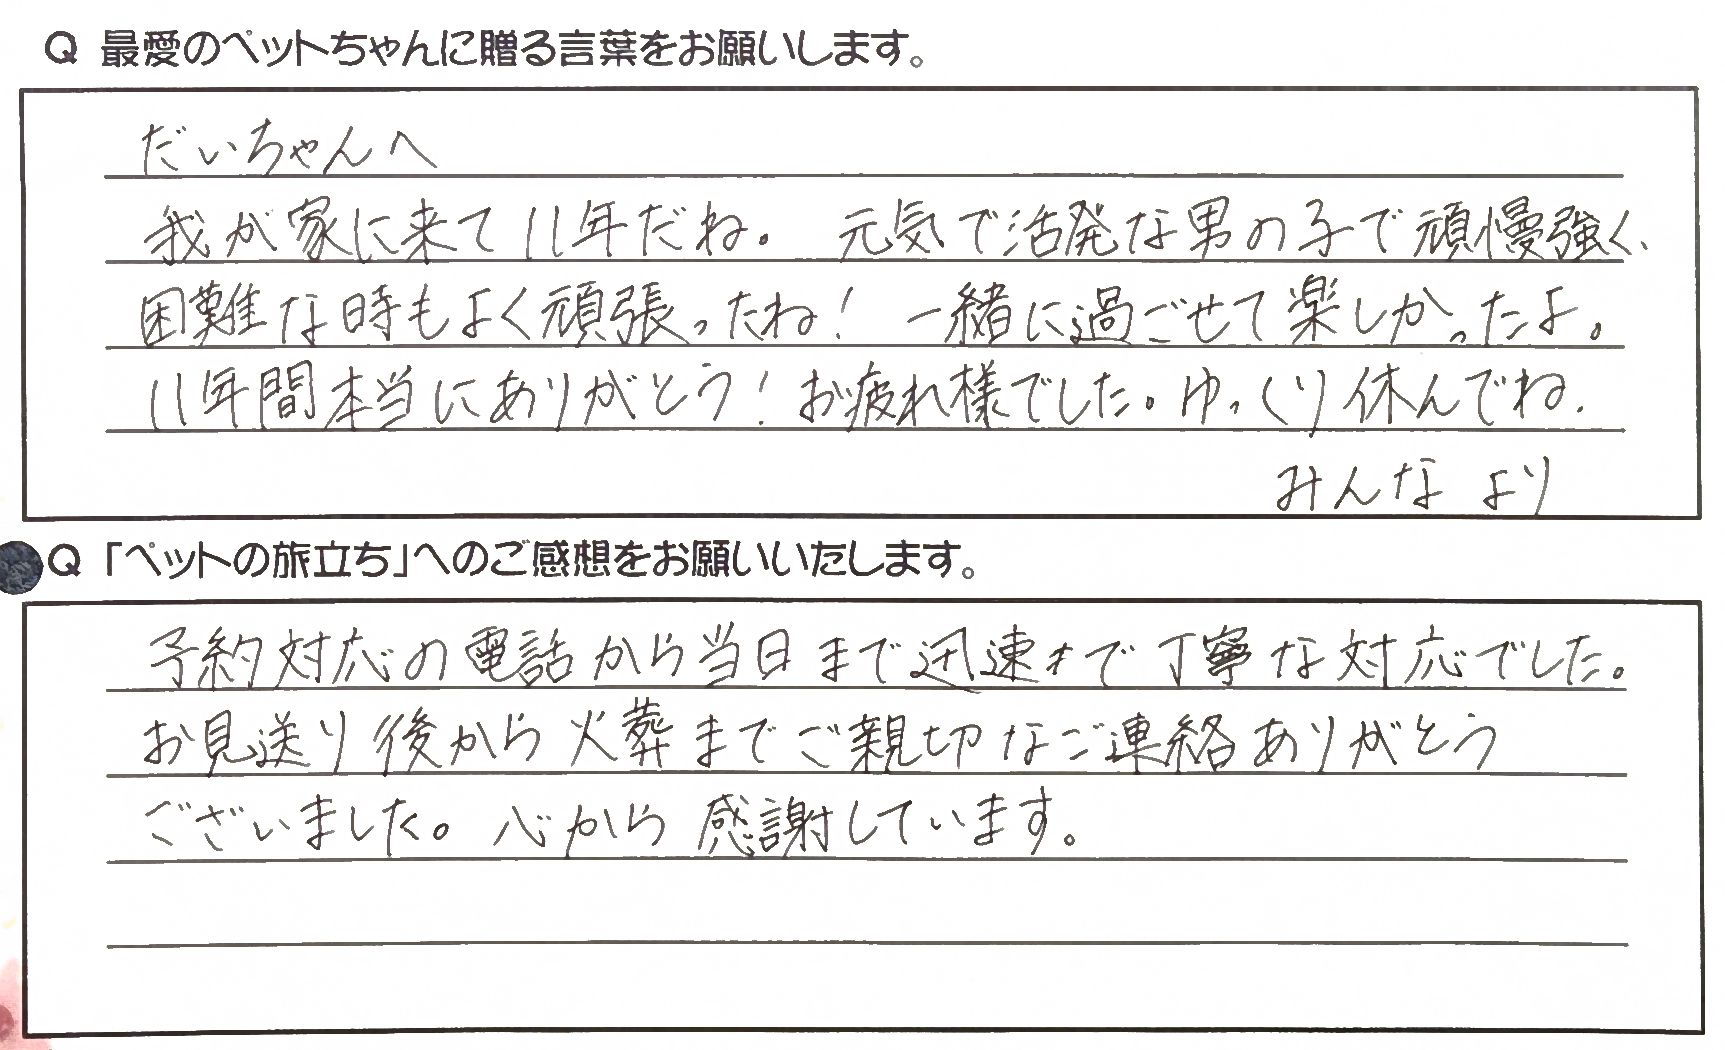 Q 最愛のペットちゃんに贈る言葉をお願いします。
だいちゃんへ
我が家に来て11年だね。 元気で活発な男の子で頑慢強く、
困難な時もよく頑張ったね! 一緒に過ごせて楽しかったよ。
11年間本当にありがとう! お疲れ様でした。ゆっくり休んでね.
みんなより
Q 「ペットの旅立ち」へのご感想をお願いいたします。
予約対応の電話から当日まで迅速まで丁寧な対応でした。
お見送り後から火葬までご親切なご連絡ありがとう
ございました。心から感謝しています。